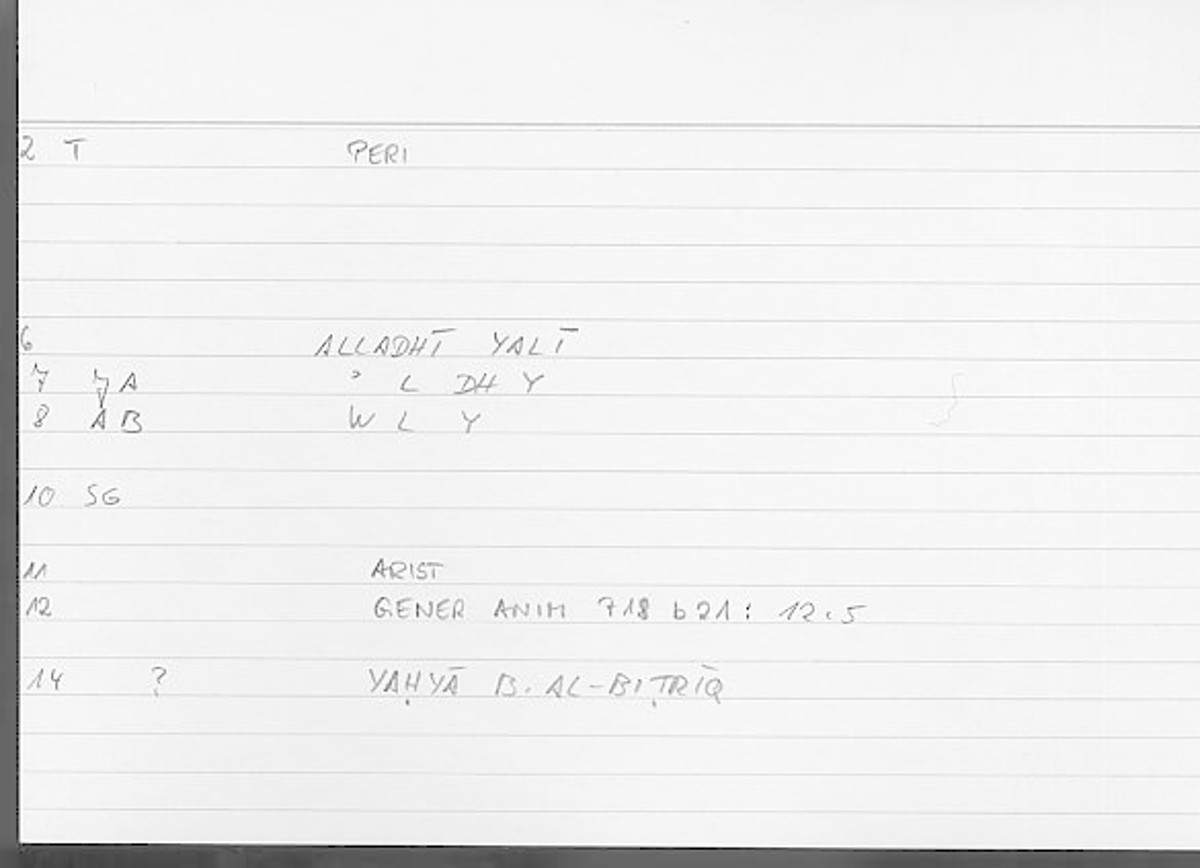 2 T PERI
6 ALLADHĪ YALĪ
7 7A ʾ L DH Y
8 AB W L Y
10 SG
11 ARIST
12 GENER ANIM 718 b 21 : 12.5
14 ? YAḤYĀ B. AL-BIṬRĪQ